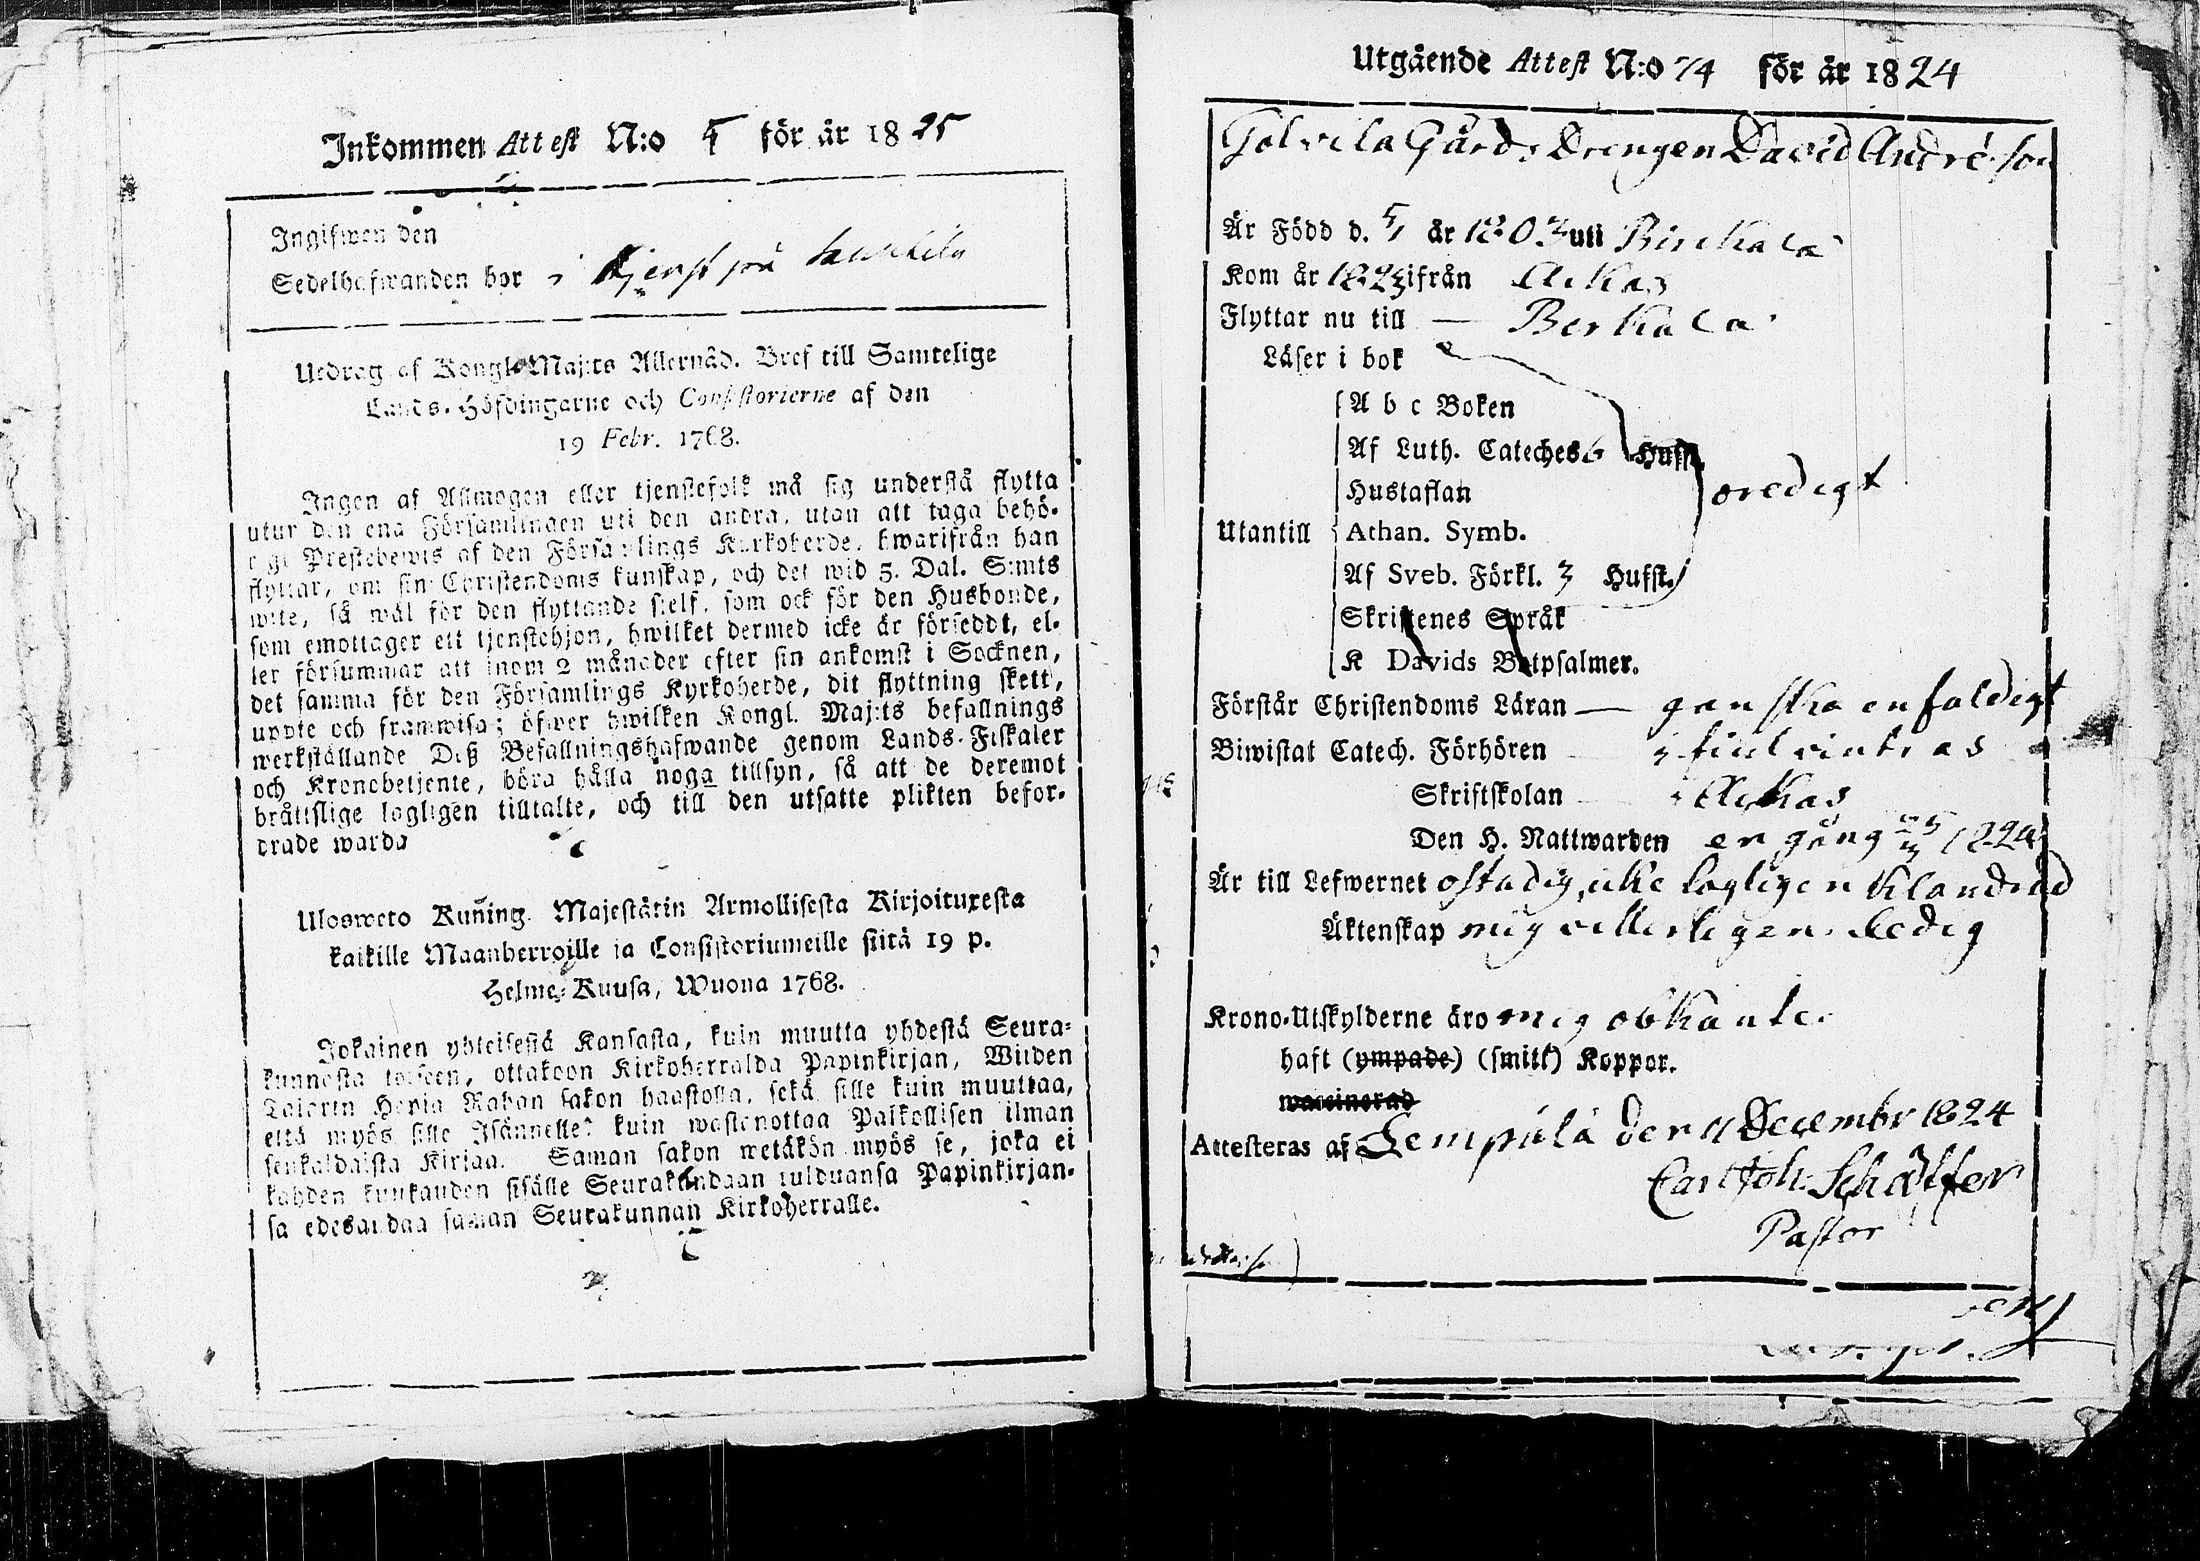 Inkommen Attest N:o 5 för år 1825
Ingifwen den
Sedelhafwanden bor i tjenst på
Utdrag af Kongl. Maj:ts Allernåd. Bref till Samtelige
Lands-Höfdingarne och Consistorierne af den
19 Febr. 1768.
Ingen af Allmogen eller tjenstefolk må sig understå flytta
utur den ena Församlingen uti den andra, utan att taga behö-
rigt Prestebewis af den Församlings Kyrkoherde, hwarifrån han
flyttar, om sin Christendoms kunskap, och det wid 5. Dal. S:mts
wite, så wäl för den flyttande sielf, som ock för den Husbonde,
som emottager ett tjenstehjon, hwilket dermed icke är försedt, el-
ler försummar att inom 2 månader efter sin ankomst i Socknen,
det samma för den Församlings Kyrkoherde, dit flyttning skett,
uppte och framwisa; öfwer hwilken Kongl. Maj:ts befallnings
werkställande Deß Befallningshafwande genom Lands-Fiskaler
och Kronobetjente, böra hålla noga tillsyn, så att de deremot
bråttslige lagligen tilltalte, och till den utsatte plikten befor-
drade warda
Ulosweto Kuning. Majestätin Armollisesta Kirjoituxesta
kaikille Maanherroille ja Consistoriumeille siitä 19 p.
Helme-Kuusa, Wuona 1768.
Jokainen yhteisestä Kansasta, kuin muutta yhdestä Seura-
kunnasta toiseen, ottakoon Kirkoherralda Papinkirjan, Wiiden
Talarin Hopia Rahan sakon haastolla, sekä sille kuin muuttaa,
että myös sille Isännelle, kuin wastanottaa Palkollisen ilman
senkaldaista Kirjaa. Saman sakon wetäkön myös se, joka ei
kahden kuukauden sisälle Seurakundaan tulduansa Papinkirjan-
sa edesandaa saman Seurakunnan Kirkoherralle.
Utgående Attest N:o 74 för år 1824
Gårds Drengen David Andrésson
Är Född d. 5/ år 1803 uti Birckala
Kom år 1823 ifrån Ackas
Flyttar nu till — Birkala
Läser i bok
A b c Boken
Af Luth. Cateches 6 Hufst.
Hustaflan oredigt
Utantill Athan. Symb.
Af Sveb. Förkl. 3 Hufst.
Skriftenes Språk
K Davids Botpsalmer.
Förstår Christendoms Läran — ganska enfaldigt
Biwistat Catech. Förhören — i fiul vintras
Skriftskolan — i Ackas
Den H. Nattwarden en gång 1824
Är till Lefwernet ostadig, icke lagligen klandrad
Äktenskap mig vitterligen ledig
Krono-Utskylderne äro mig obkante.
haft (ympade) (smitt) Koppor.
waccinerad
Attesteras af Lempälä den 11 Decembr 1824
Carl Joh. Schäffer
Pastor